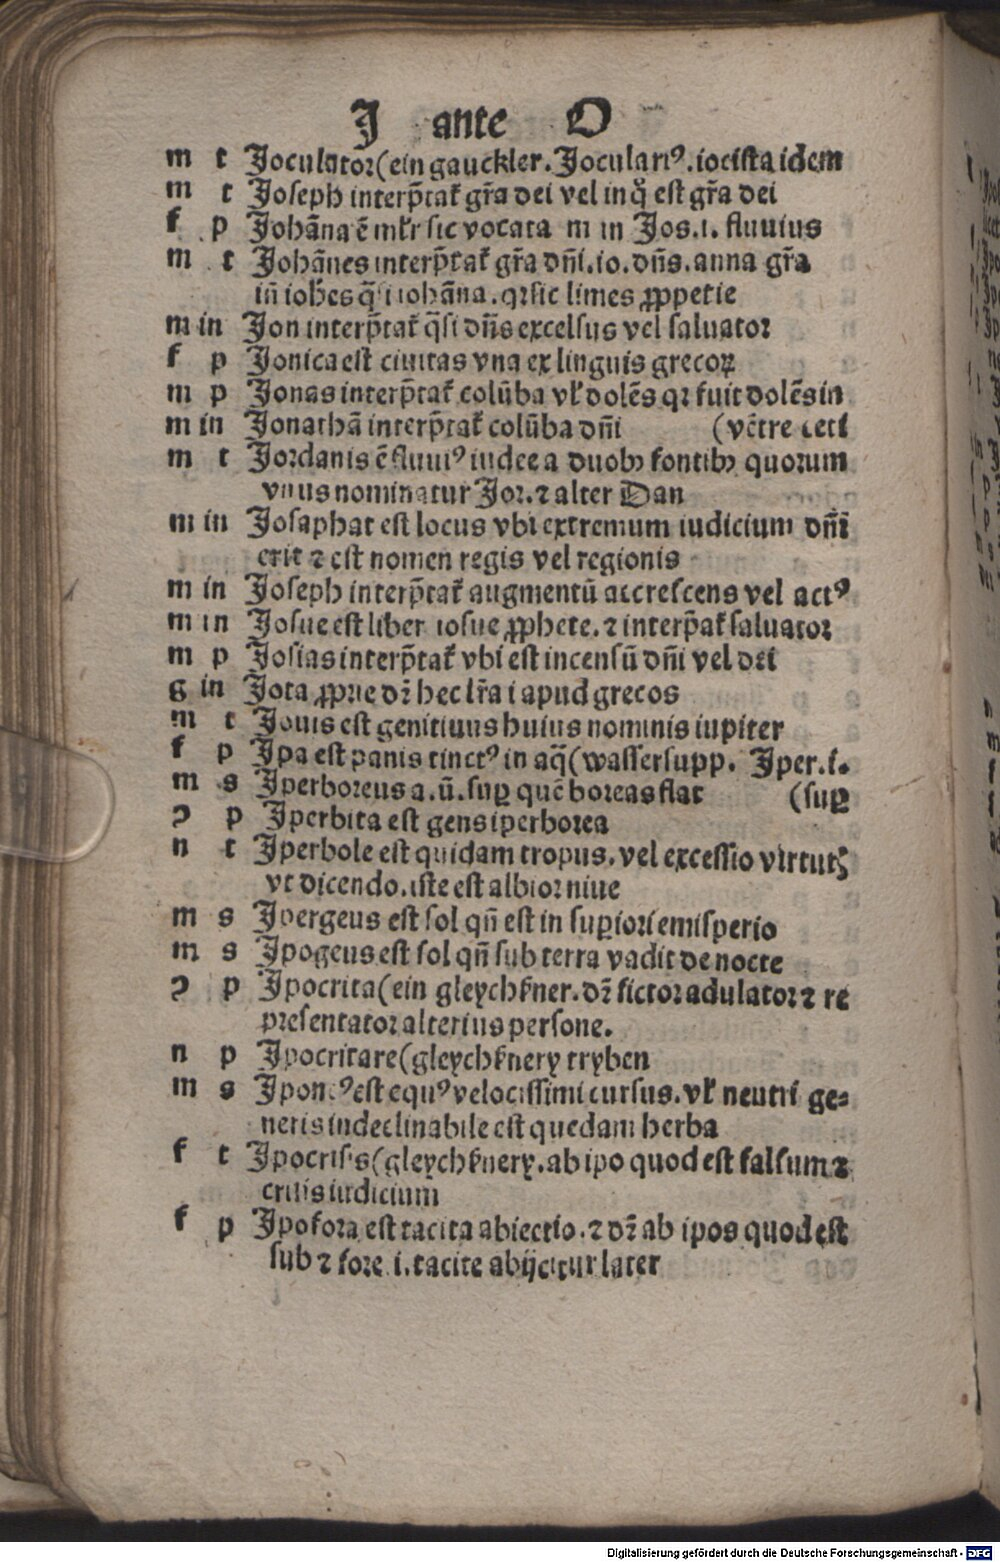 J ante O
m t Joculator(ein gauckler.Joculariꝰ.iocista idem
m t Joseph interp̄tat᷑ gr̄a dei vel in q̊ est gr̄a dei
f p Johāna ē mĺr sic vocata m in Jos.i. fluuius
m t Johānes interp̄tat᷑ gr̄a dn̄i.io.dn̄s.anna gr̄a
iñ iohēs q̄si iohāna.qꝛ sic limes ꝓppetie
m in Jon interp̄tat᷑ q̄si dn̄s excelsus vel saluatoꝛ
f p Jonica est ciuitas vna ex linguis grecoꝝ
m p Jonas interp̄tat᷑ colūba vĺ dolēs qꝛ fuit dolēs in
m in Jonathā interp̄tat᷑ colūba dn̄i (vētre ceti
m t Joꝛdanis ē fluuiꝰ iudee a duobꝫ fontibꝫ quoꝛum
vnus nominatur Joꝛ.⁊ alter Dan
m in Josaphat est locus vbi extremum iudicium dn̄i
erit ⁊ est nomen regis vel regionis
m in Joseph interp̄tat᷑ augmentū accrescens vel actꝰ
m in Josue est liber iosue ꝓphete.⁊ interp̄at᷑ saluatoꝛ
m p Josias interp̄tat᷑ vbi est incensū dn̄i vel dei
g in Jota ꝓprie dꝛ̄ hec lr̄a i apud grecos
m t Jouis est genitiuus huius nominis iupiter
f p Jpa est panis tinctꝰ in aq̄(wassersupp. Jper.i.
m s Jperboreus a.ū.suꝑ quē boreas flat (suꝑ
ꝯ p Jperbita est gens iperboꝛea
n t Jperbole est quidam tropus.vel excessio virtutꝭ
vt dicendo.iste est albioꝛ niue
m s Jpergeus est sol qn̄ est in suꝑioꝛi emisperio
m s Jpogeus est sol qn̄ sub terra vadit de nocte
ꝯ p Jpocrita(ein gleychßner.dꝛ̄ fictoꝛ adulatoꝛ ⁊ re
pꝛesentatoꝛ alterius persone.
n p Jpocritare(gleychßnery tryben
m s Jpon ꝰ est equꝰ velocissimi cursus.vĺ neutri ge⸗
neris indeclinabile est quedam herba
f t Jpocrisis(gleychßnery.ab ipo quod est falsum ⁊
crisis iudicium
f p Jpofoꝛa est tacita abiectio.⁊ dꝛ̄ ab ipos quod est
sub ⁊ foꝛe.i.tacite abijcitur later
Digitalisierung gefördert durch die Deutsche Forschungsgemeinschaft - DFG